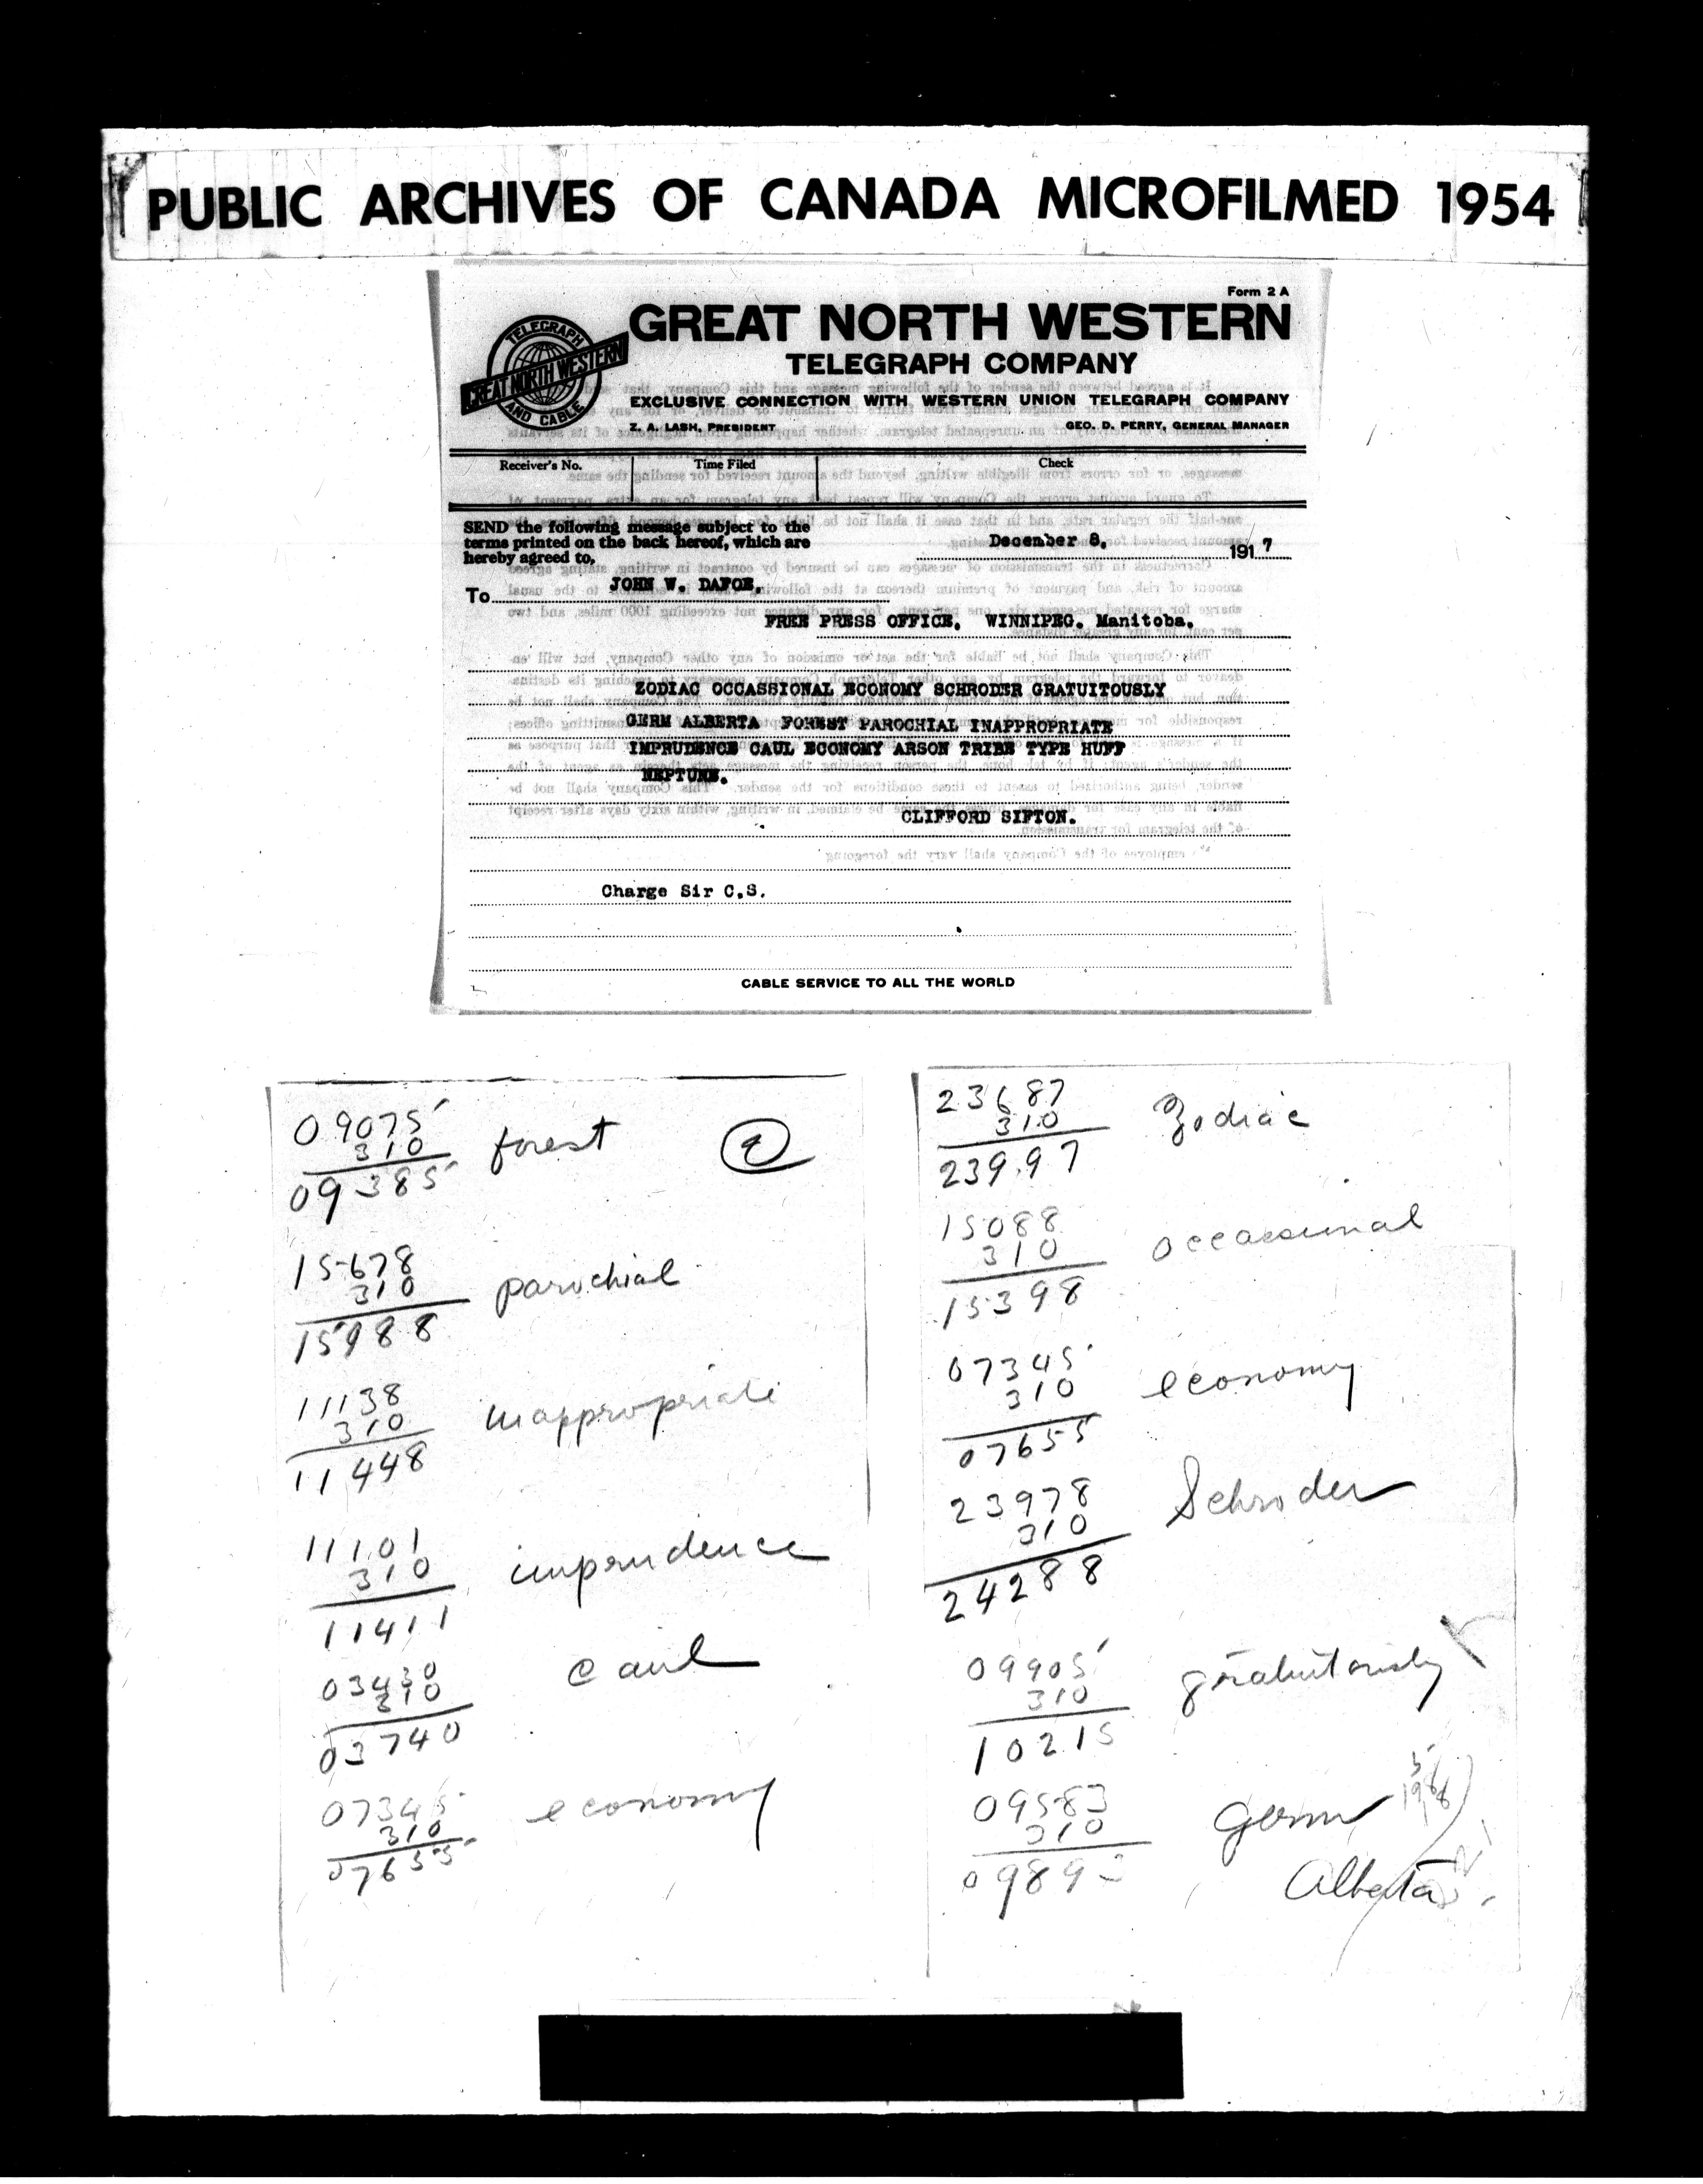 PUBLIC ARCHIVES OF CANADA MICROFILMED 1954
Form 2 A
TELEGRAPH
GREAT NORTH WESTERN
AND CABLE
GREAT NORTH WESTERN
TELEGRAPH COMPANY
EXCLUSIVE CONNECTION WITH WESTERN UNION TELEGRAPH COMPANY
Z. A. LASH, PRESIDENT GEO. D. PERRY, GENERAL MANAGER
Receiver's No. Time Filed Check
SEND the following message subject to the
terms printed on the back hereof, which are
hereby agreed to,
December 8, 1917
To JOHN W. DAFOE,
FREE PRESS OFFICE, WINNIPEG. Manitoba.
ZODIAC OCCASSIONAL ECONOMY SCHRODER GRATUITOUSLY
GERM ALBERTA FOREST PAROCHIAL INAPPROPRIATE
IMPRUDENCE CAUL ECONOMY ARSON TRIBE TYPE HUFF
NEPTUNE.
CLIFFORD SIFTON.
Charge Sir C.S.
CABLE SERVICE TO ALL THE WORLD
09075
310 forest
09385
15678
310 parochial
15988
11138
310 inappropriate
11448
11101
310 imprudence
11411
03430
310 caul
03740
07345
310 economy
07655
23687
310 Zodiac
23997
15088
310 occassional
15398
07345
310 economy
07655
23978
310 Schroder
24288
09905
310 gratuitously
10215
09583
310 germ
0989
Alberta